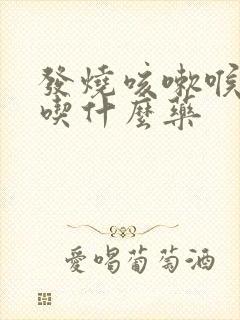 發燒咳嗽喉
喫什麼藥
愛喝葡萄酒